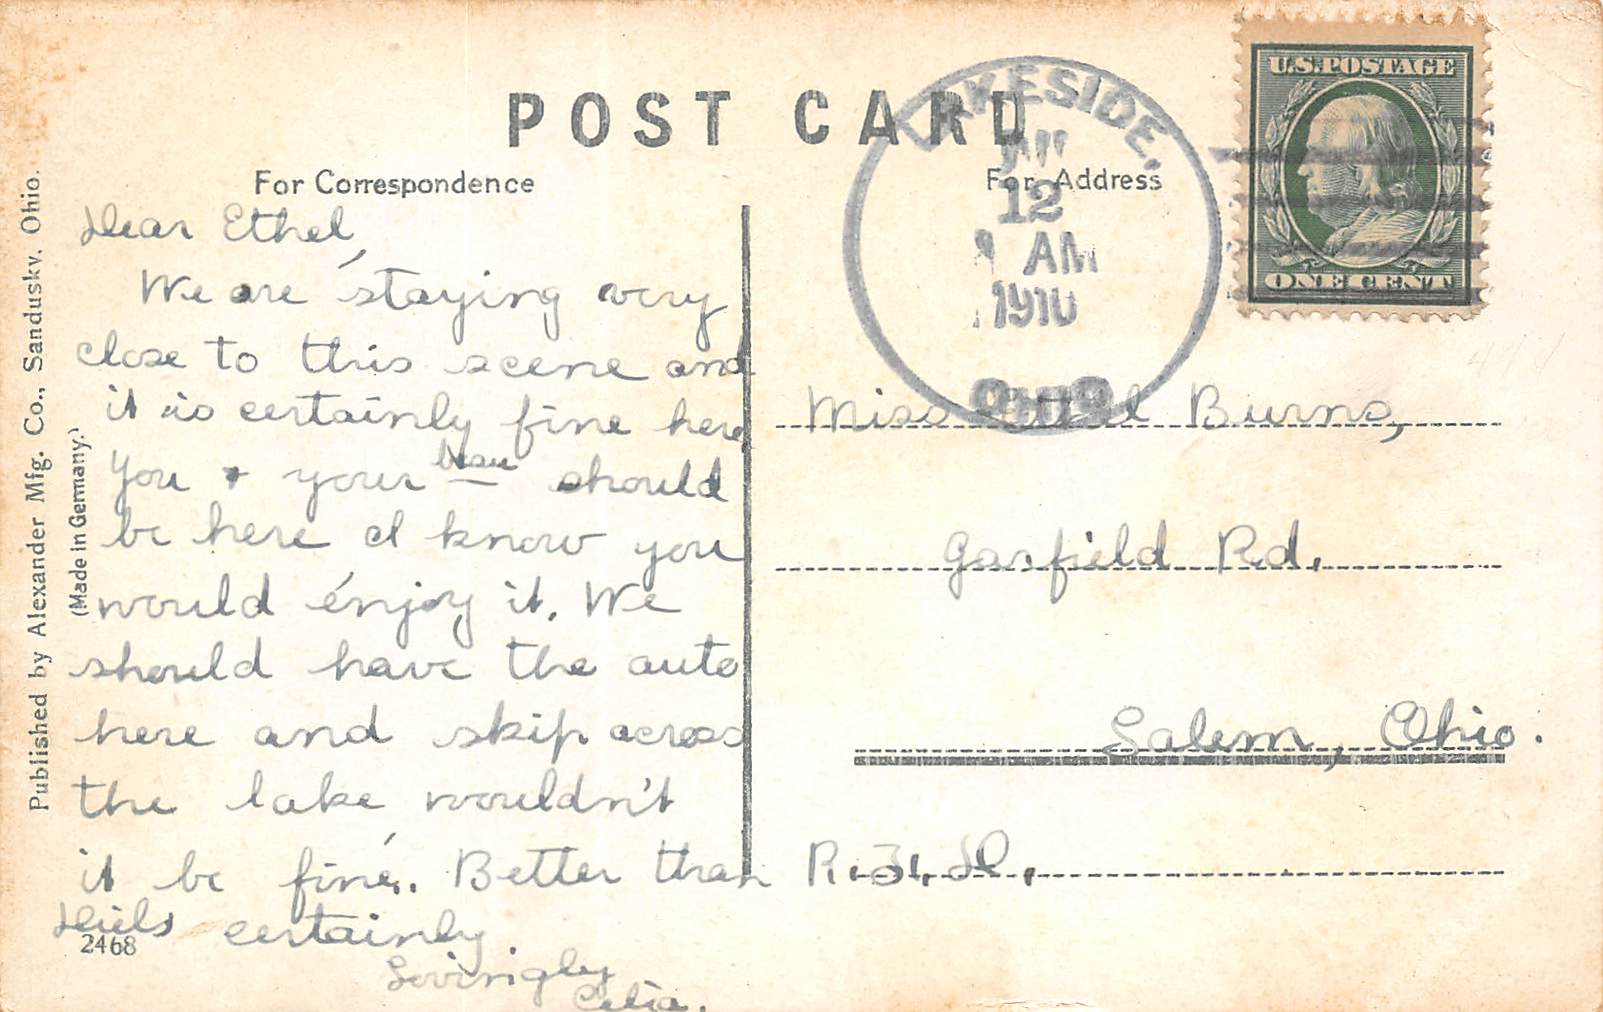 POST CARD
For Correspondence
For Address
Published by Alexander Mfg. Co., Sandusky, Ohio.
(Made in Germany.)
Dear Ethel,
We are staying very
close to this scene and
it is certainly fine here
You & your beau should
be here I know you
would enjoy it. We
should have the auto
here and skip across
the lake wouldn't
it be fine. Better than
certainly.
Lovingly
Celia.
2468
LAKESIDE,
12
AM
1910
OHIO
U.S. POSTAGE
ONE CENT
Miss Ethel Burns,
Garfield Rd.
Salem, Ohio.
R.F.D.